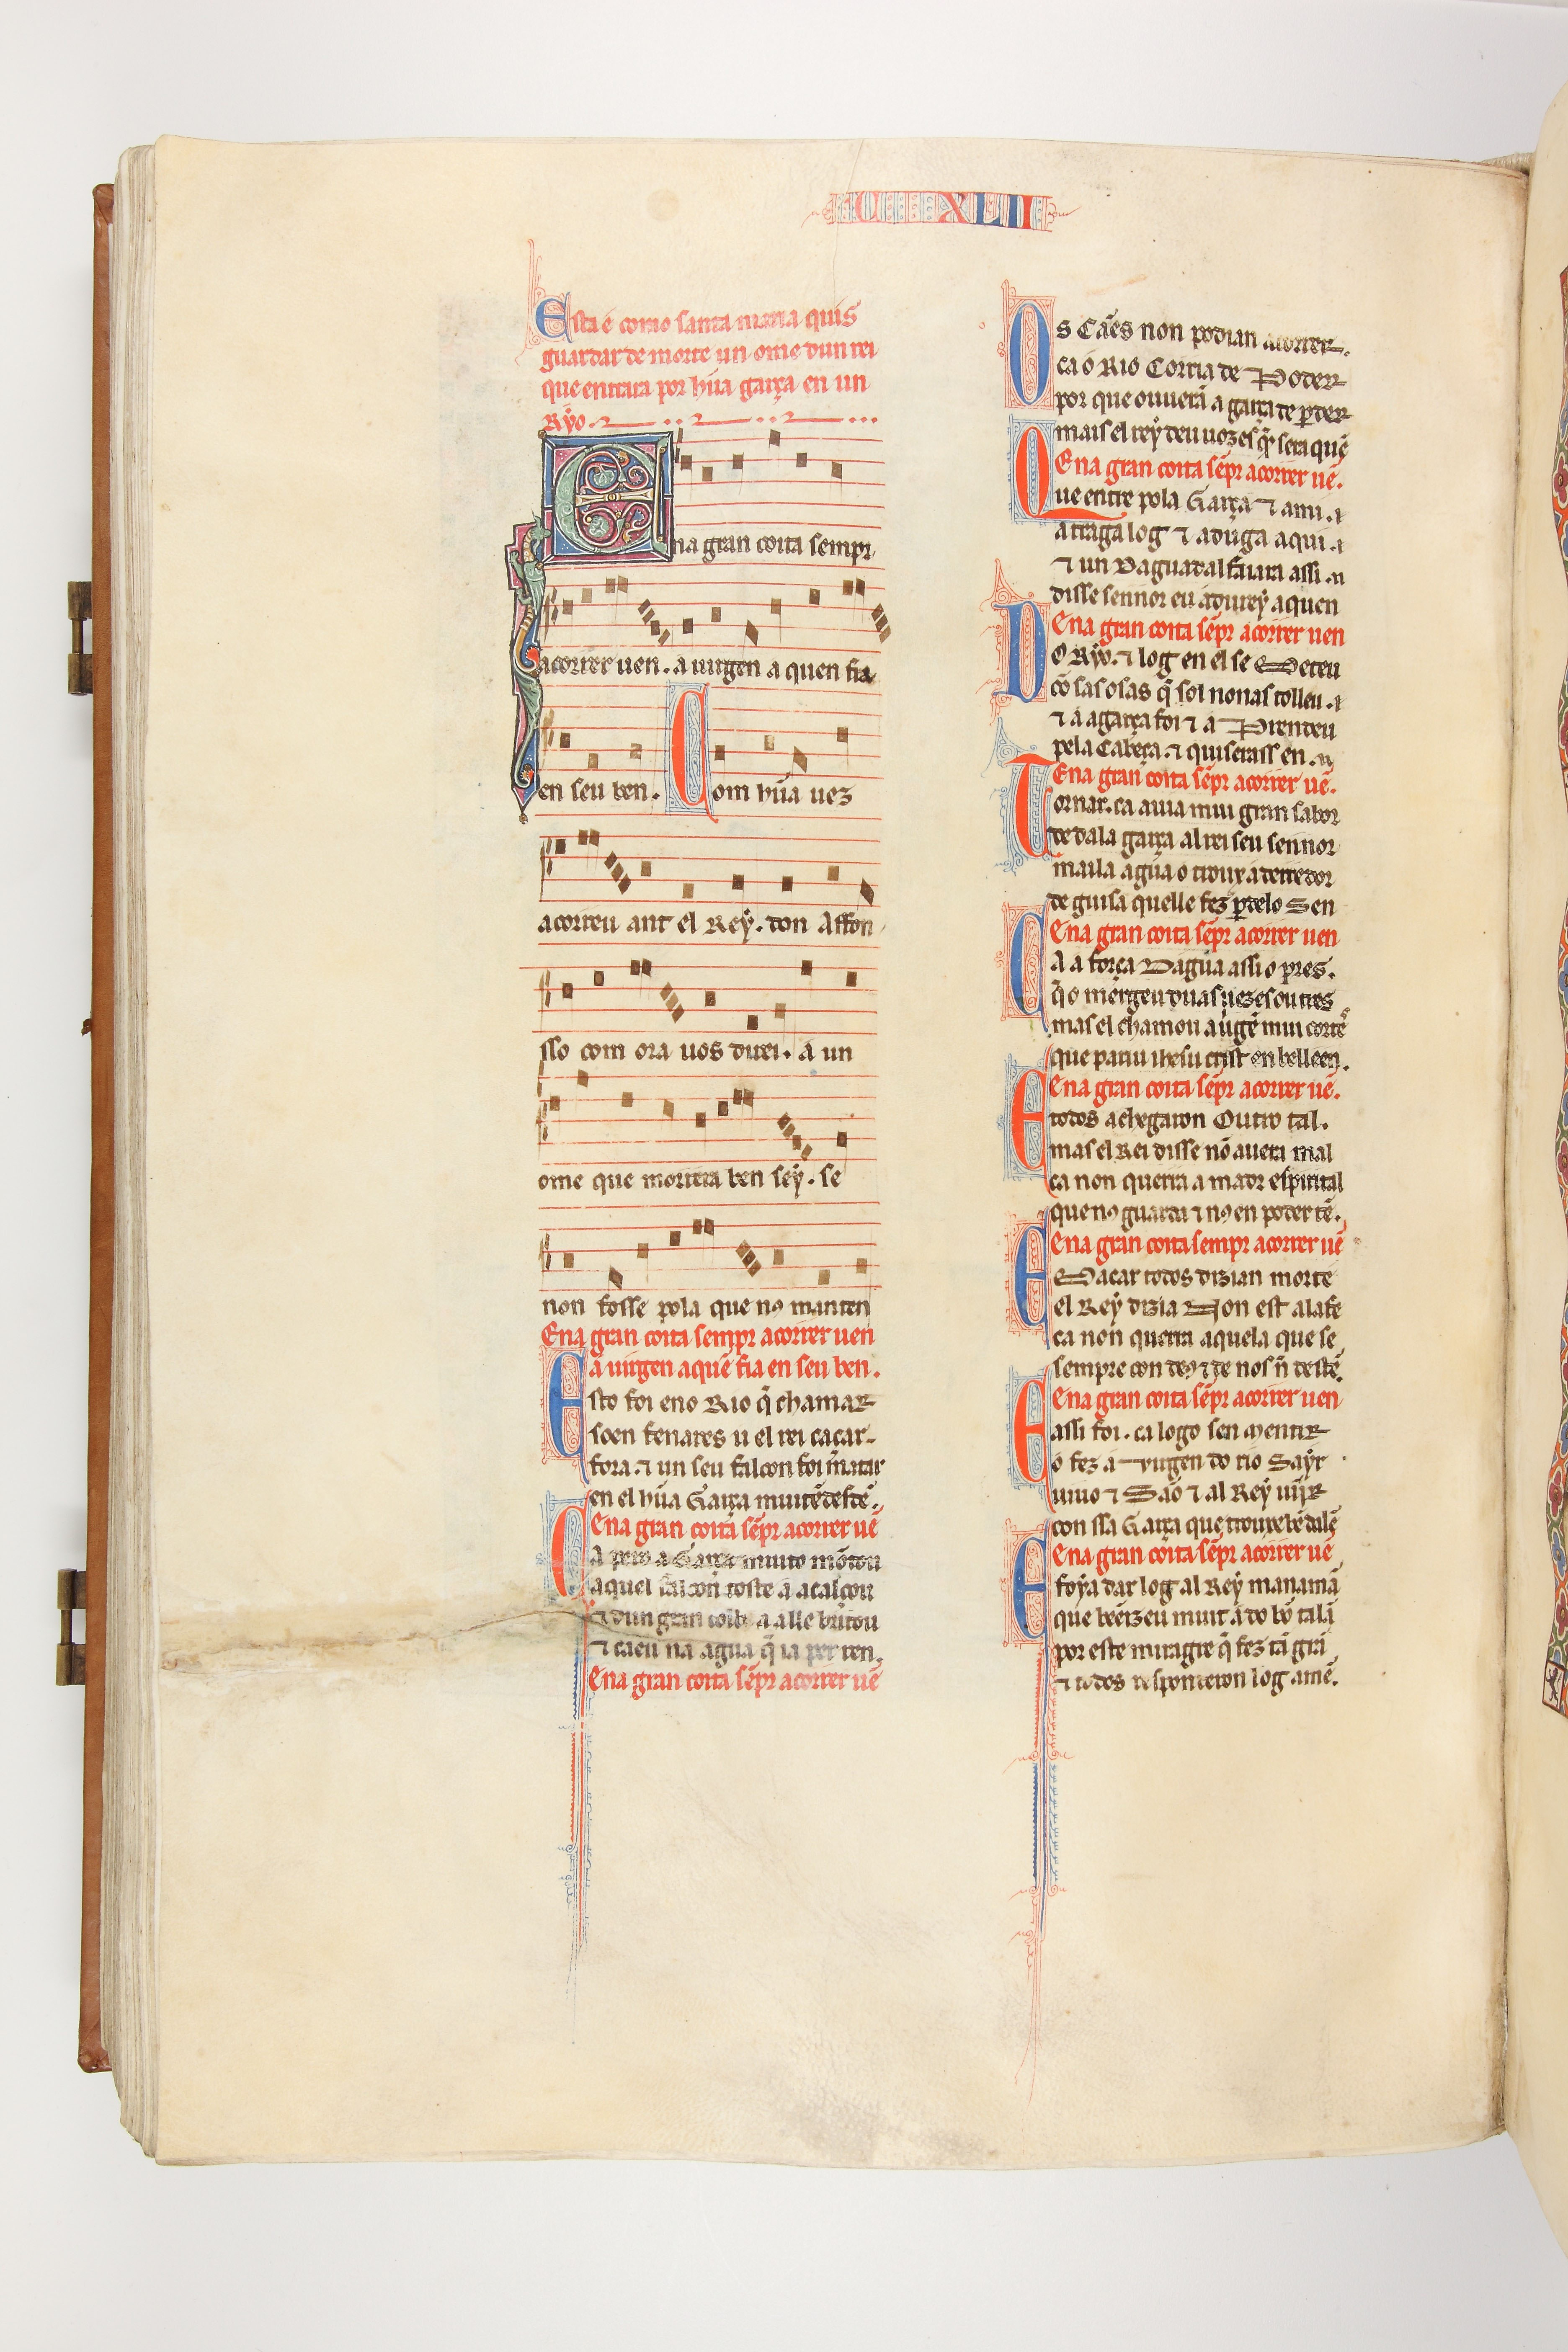 CXLII
Esta é como santa maria quis
guardar de morte un ome dun rei
que entrara por hũa garça en un
Rẏo.
Ena gran coita sempr
acorrer uen. a uirgen a quen fia
en seu ben. Com hũa uez
acorreu ant el Reẏ. don Affon
sso com ora uos direi. a un
ome que morrera ben seẏ. se
non fosse pola que nꝯ manten
Ena gran coita sempr acorrer uen
a uirgen a quẽ fia en seu ben.
Esto foi eno Rio q̃ chamar
soen fenares u el rei caçar
fora. ⁊ un seu falcon foi matar
en el hũa Garça muit ẽ desdẽ.
Ena gran coita sẽpr acorrer uẽ
Ca pero a Garça muito mõtou
aquel falcon toste a acalçou
⁊ dun gran colb a alle britou
⁊ caeu na agua q̃ ia per ren.
Ena gran coita sẽpr acorrer uẽ
Os Cães non podian acorrer.
ca o Rio Corria de Poder
por que ouuerã a garça de ꝑder
mais el reẏ deu uozes q̃r sera quẽ
Ena gran coita sẽpr acorrer uẽ.
Que entre pola Garça ⁊ ami
a traga log ⁊ aduga aqui
⁊ un Daguadalfaiara assi
disse sennor eu adureẏ aquen
Ena gran coita sẽpr acorrer uen
Do Rẏo. ⁊ log en el se Meteu
cõ sas osas q̃ sol nonas tolleu
⁊ a a garça foi ⁊ a Prendeu
pela Cabeça. ⁊ quiserass en
Ena gran coita sẽpr acorrer uẽ.
Tornar. ca auia mui gran sabor
de dala garça al rei seu sennor
mai la agua o troux a derredor
de guisa quelle fez ꝑdelo Sen
Ena gran coita sẽpr acorrer uen
Ca a força Dagua assi o pres.
q̃ o mergeu duas uezes ou tres
mas el chamou a uirgẽ mui cortes
que pariu ihesu crist en belleen.
Ena gran coita sẽpr acorrer uẽ.
E todos a chegaron Outro tal.
mas el Rei disse nõ auera mal
ca non querra a madr espirital
que nꝯ guarda ⁊ nꝯ en poder tẽ.
Ena gran coita sempr acorrer uẽ
E Macar todos dizian morte
el Reẏ dizia Non est alafe
ca non querra aquela que se
sempre con deꝯ ⁊ de nos ñ destẽ.
Ena gran coita sẽpr acorrer uen
E assi foi. ca logo sen mentir
o fez a uirgen do rio Saẏr
uiuo ⁊ São ⁊ al Reẏ uĩir
con ssa Garça que trouxe bẽ dalẽ
Ena gran coita sẽpr acorrer uẽ
E foẏa dar log al Reẏ manamã
que bẽeizeu muit a do bõ talã
por este miragre q̃ fez tã grã
⁊ todos responderon log amẽ.